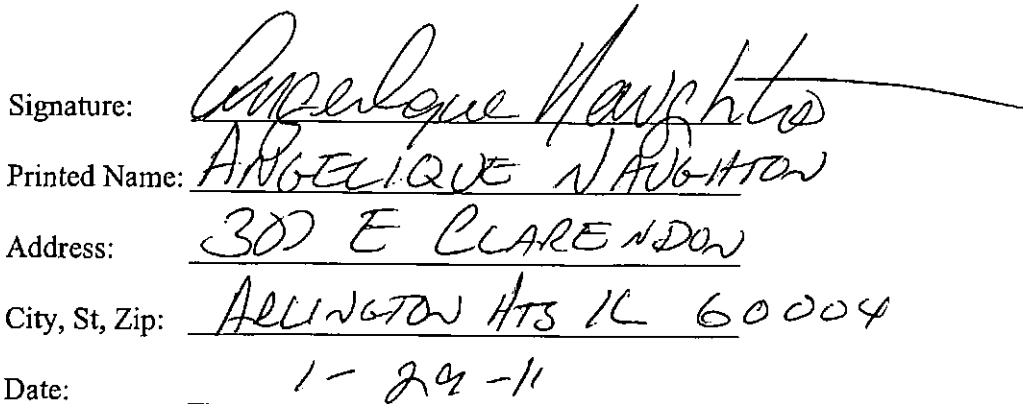 Signature: Angelique Naughton
Printed Name: ANGELIQUE NAUGHTON
Address: 307 E CLARENDON
City, St, Zip: ARLINGTON HTS IL 60004
Date: 1-29-11